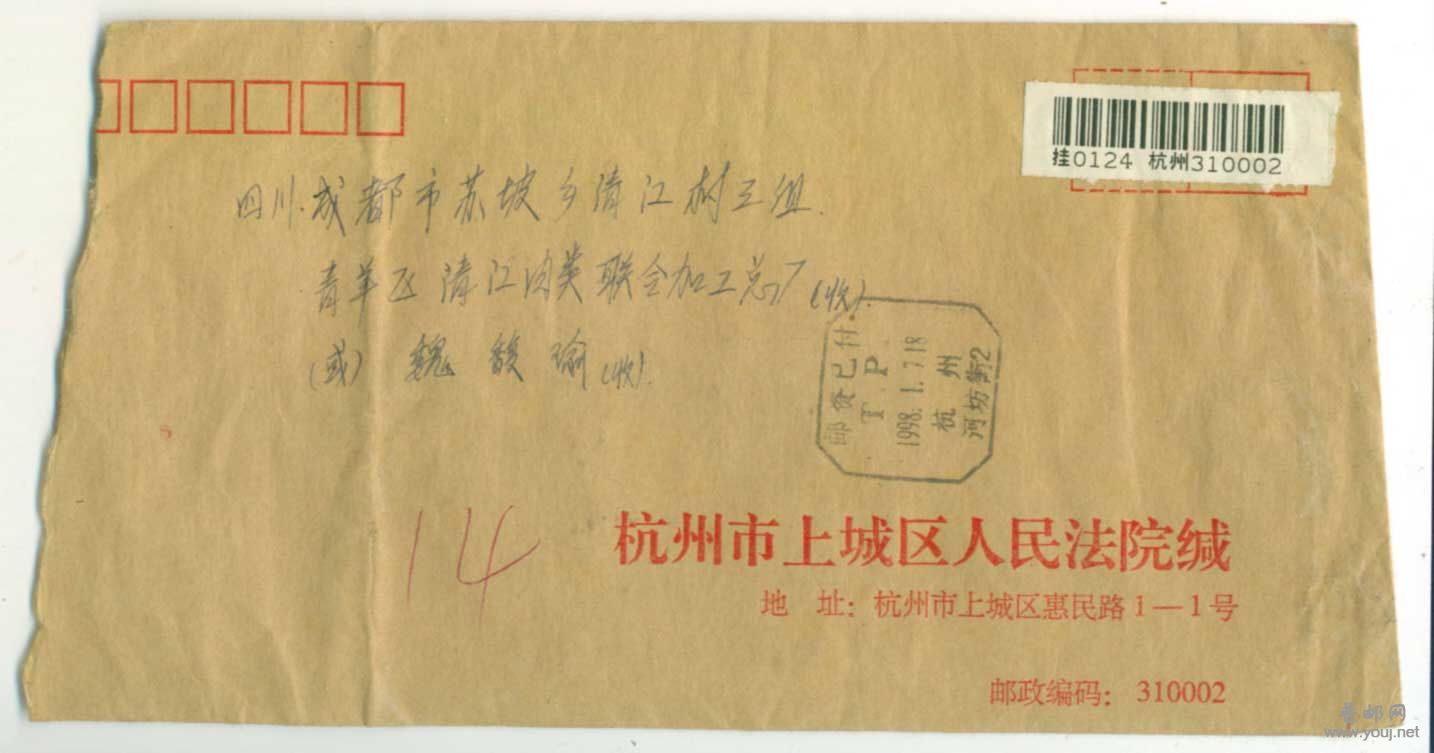 挂0124 杭州310002
四川.成都市苏坡乡清江村三组.
青羊区清江肉类联合加工总厂(收).
(或) 魏馥瑜(收).
邮资已付
T.P.
1998.1.7.18
杭州
河坊街2
14
杭州市上城区人民法院缄
地 址：杭州市上城区惠民路1—1号
邮政编码：310002
www.youj.net